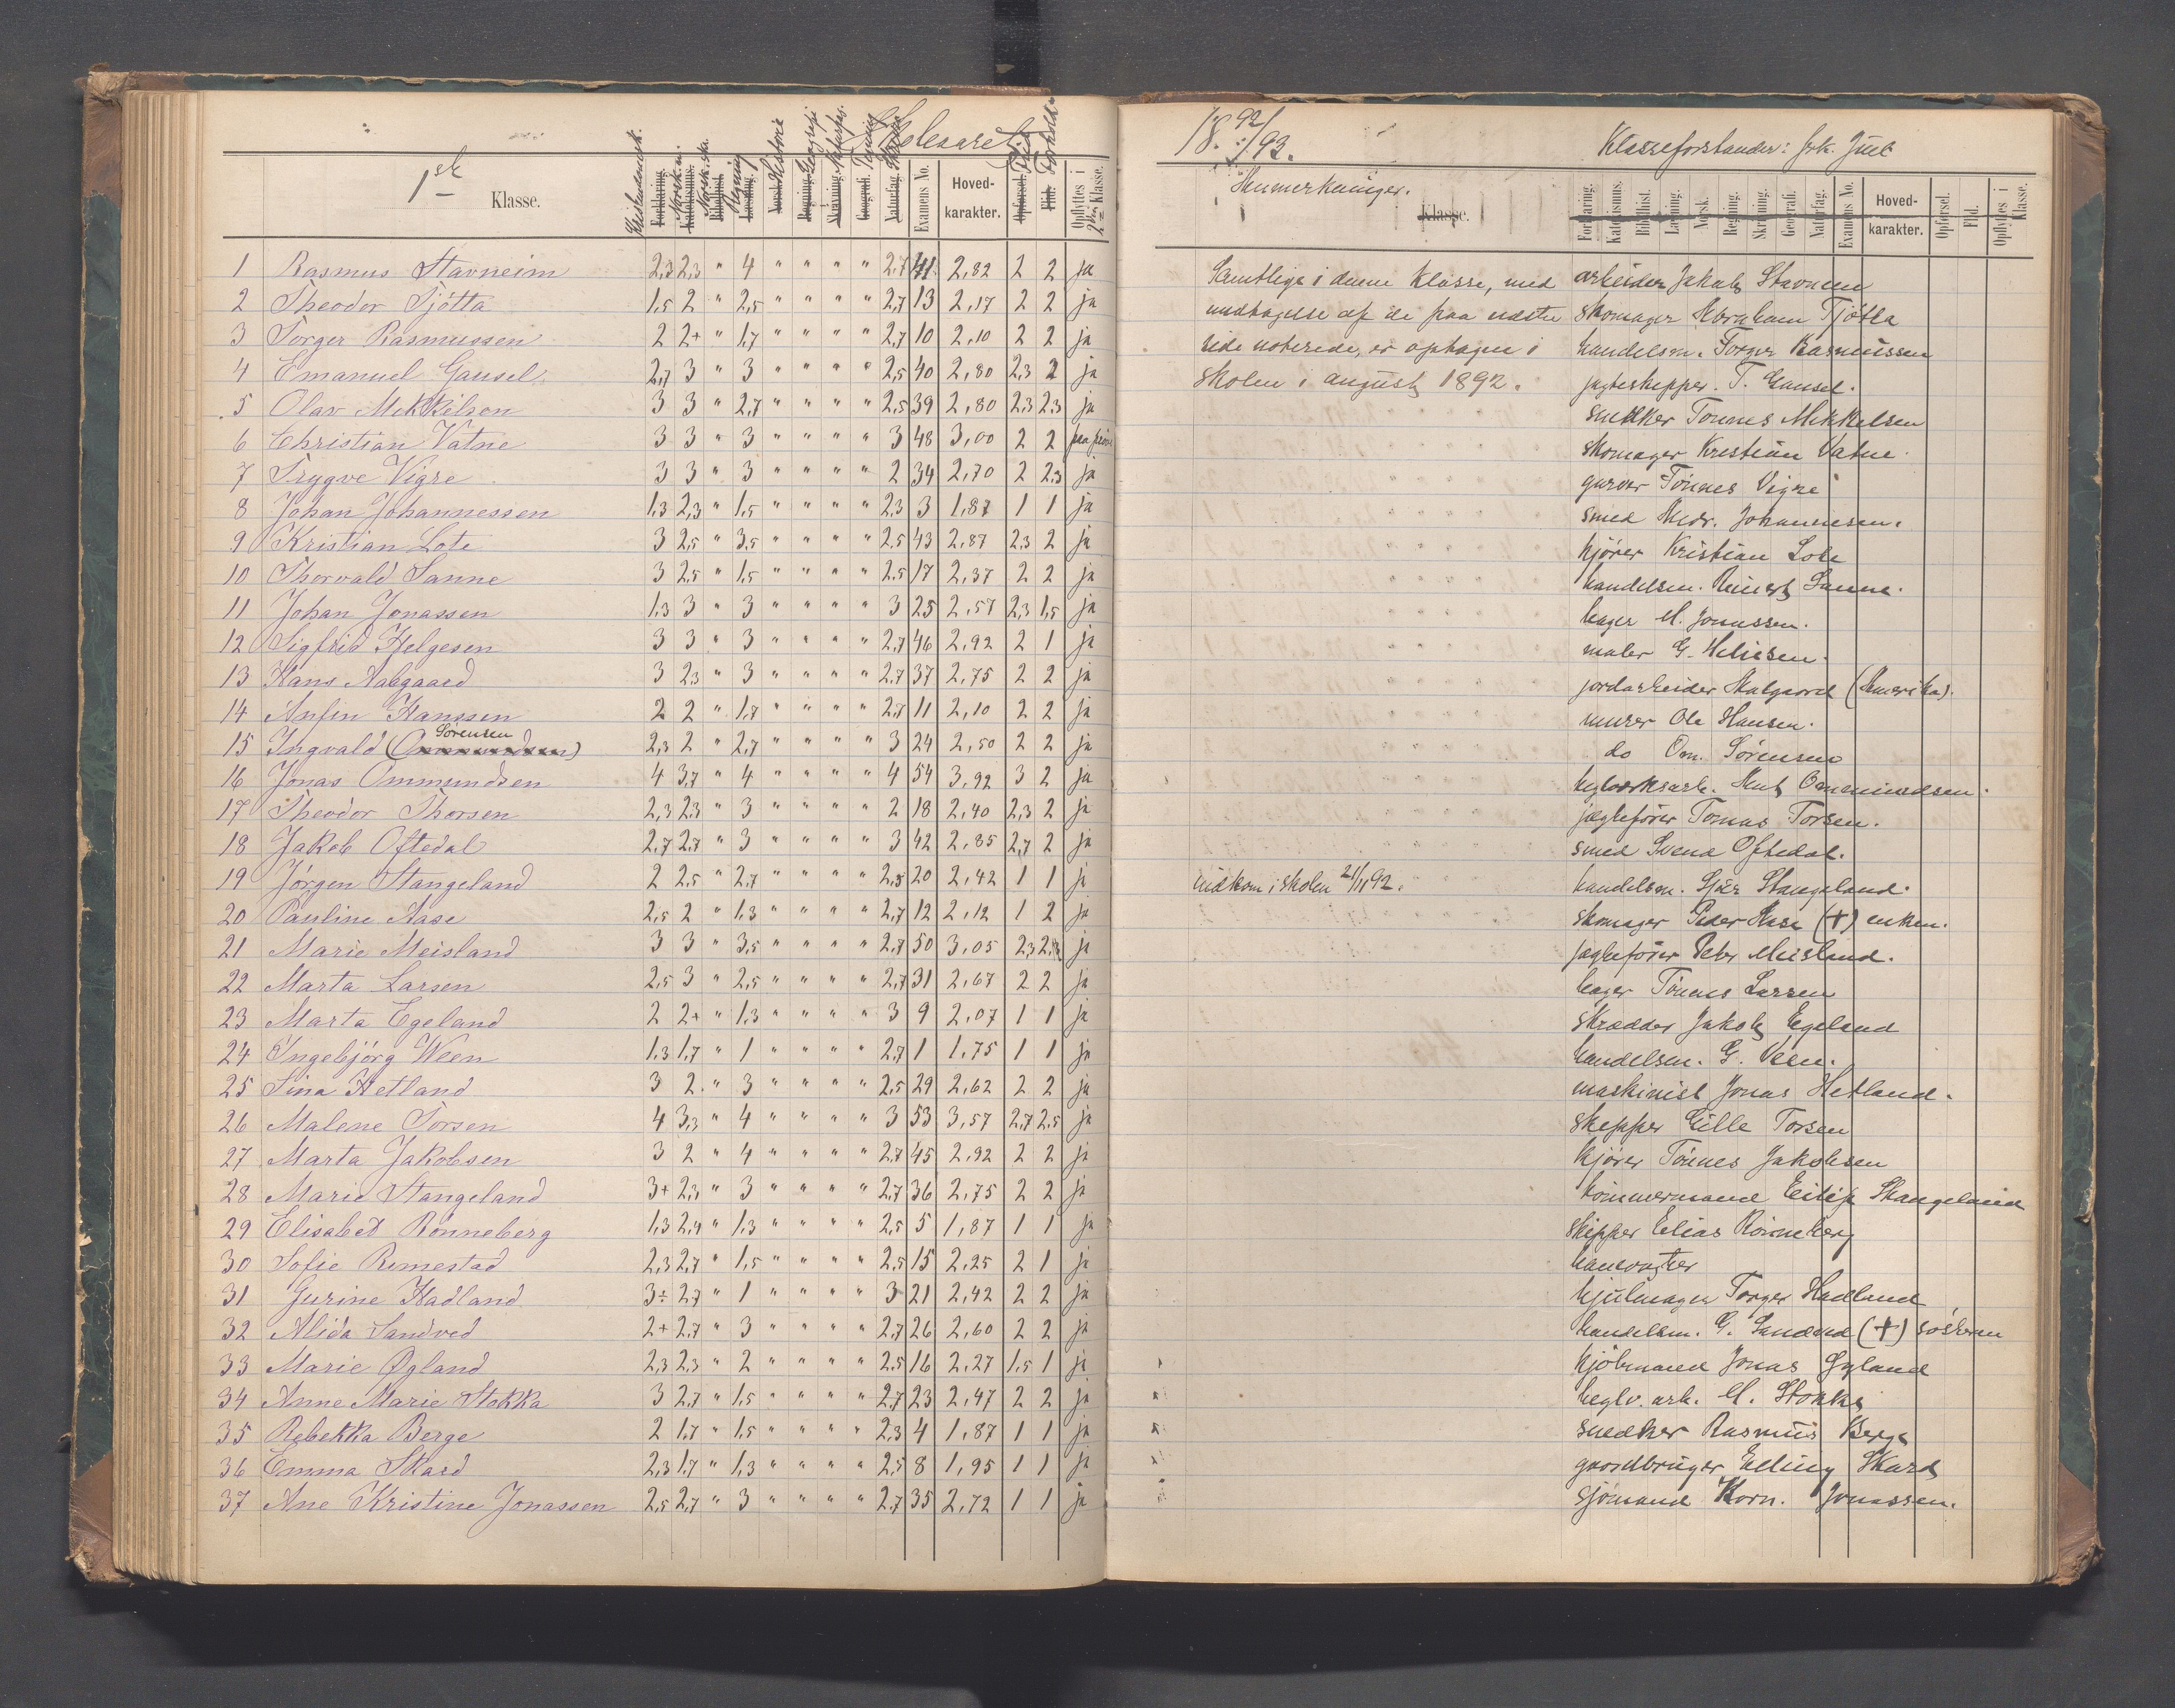 Skoleaaret 18 92/93.
Klasseforstander: frk. Juel
1ste Klasse.
Kristendomsk. Norsk m. Norsk skr. Regning Historie Geografi Naturfag. Tegning Skrivning Examens No. Hoved-karakter. Flid Forhold Opflyttes i 2den Klasse.
Anmerkninger.
Klasse.
Forklaring. Katekismus. Bibelhist. Læsning. Norsk. Regning. Skrivning. Geografi. Naturfag. Examens No. Hoved-karakter. Opførsel. Flid. Opflyttes i Klasse.
1 Rasmus Stavneim 2,3 2,3 " 4 " " " " 2,7 41 2,82 2 2 ja Samtlige i denne klasse, med arbeider Jakob Stavnem
2 Theodor Tjötta 1,5 2 " 2,5 " " " " 2,7 13 2,17 2 2 ja undtagelse af de paa næste skomager Abraham Tjötta
3 Torger Rasmussen 2 2+ " 1,7 " " " " 2,7 10 2,10 2 2 ja side noterede, er optagen i handelsm. Torger Rasmussen
4 Emanuel Gausel 2,7 3 " 3 " " " " 2,5 40 2,80 2,3 2 ja skolen i august 1892. jagteskipper. T. Gausel.
5 Olav Mikkelsen 3 3 " 2,7 " " " " 2,5 39 2,80 2,3 2,3 ja snekker Tönnes Mikkelsen
6 Christian Vatne 3 3 " 3 " " " " 3 48 3,00 2 2 paa prøve skomager Kristian Vatne.
7 Trygve Vigre 3 3 " 3 " " " " 2 34 2,70 2 2,3 ja garver Tönnes Vigre
8 Johan Johannessen 1,3 2,3 " 1,5 " " " " 2,3 3 1,87 1 1 ja smed Andr. Johannesen.
9 Kristian Lote 3 2,5 " 3,5 " " " " 2,5 43 2,87 2,3 2 ja kjörer Kristian Lote
10 Thorvald Sanne 3 2,5 " 1,5 " " " " 2,5 17 2,37 2 2 ja handelsm. Reinert Sanne.
11 Johan Jonassen 1,3 3 " 3 " " " " 3 25 2,57 2,3 1,5 ja bager M. Jonassen.
12 Sigfrid Helgesen 3 3 " 3 " " " " 2,7 46 2,92 2 1 ja maler G. Heliesen.
13 Hans Aalgaard 3 2,3 " 3 " " " " 2,7 37 2,75 2 2 ja jordarbeider Aalgaard (Amerika).
14 Anfin Hanssen 2 2 " 1,7 " " " " 2,7 11 2,10 2 2 ja murer Ole Hansen.
15 Ingvald (Ommundsen) Sörensen 2,3 2 " 2,7 " " " " 3 24 2,50 2 2 ja do Om. Sörensen
16 Jonas Ommundsen 4 3,7 " 4 " " " " 4 54 3,92 3 2 ja teglverksarb. Knut Ommundsen.
17 Theodor Thorsen 2,3 2,3 " 3 " " " " 2 18 2,40 2,3 2 ja jægtefører Tomas Torsen.
18 Jakob Oftedal 2,7 2,7 " 3 " " " " 3 42 2,85 2,7 2 ja smed Svend Oftedal.
19 Jörgen Stangeland 2 2,5 " 2,7 " " " " 2,5 20 2,42 1 1 ja indkom i skolen 21/11 92. handelsm. Sjur Stangeland.
20 Pauline Aase 2,5 2 " 1,3 " " " " 2,7 12 2,12 1 2 ja skomager Peder Aase (+) enken.
21 Marie Meisland 3 3 " 3,5 " " " " 2,7 50 3,05 2,3 2,3 ja jægtefører Peter Meisland.
22 Marta Larsen 2,5 3 " 2,5 " " " " 2,7 31 2,67 2 2 ja bager Tönnes Larsen
23 Marta Egeland 2 2+ " 1,3 " " " " 3 9 2,07 1 1 ja skrædder Jakob Egeland
24 Ingebjörg Ween 1,3 1,7 " 1 " " " " 2,7 1 1,75 1 1 ja handelsm. G. Veen.
25 Sina Hetland 3 2. " 3 " " " " 2,5 29 2,62 2 2 ja maskinist Jonas Hetland.
26 Malene Torsen 4 3,3 " 4 " " " " 3 53 3,57 2,7 2,5 ja skipper Gille Torsen
27 Marta Jakobsen 3 2 " 4 " " " " 2,7 45 2,92 2 2 ja kjörer Tönnes Jakobsen
28 Marie Stangeland 3+ 2,3 " 3 " " " " 2,7 36 2,75 2 2 ja tömmermand Eilif Stangeland
29 Elisabet Rönneberg 1,3 2,4 " 1,3 " " " " 2,5 5 1,87 1 1 ja skipper Elias Rönneberg
30 Sofie Rimestad 2,3 2,7 " 1,5 " " " " 2,5 15 2,25 2 1 ja
31 Gurine Hadland 3÷ 2,7 " 1 " " " " 3 21 2,42 2 2 ja hjulmager Torger Hadland
32 Alida Sandved 2+ 2,7 " 3 " " " " 2,7 26 2,60 2 2 ja handelsm. G. Sandved (+)
33 Marie Øgland 2,3 2,3 " 2 " " " " 2,5 16 2,27 1,5 1 ja kjöbmand Jonas Øgland
34 Anne Marie Stokka 3 2,7 " 1,5 " " " " 2,7 23 2,47 2 2 ja teglv. arb. M. Stokka
35 Rebekka Berge 2 1,7 " 1,5 " " " " 2,3 4 1,87 1 1 ja snedker Rasmus Berge
36 Emma Skard 2,3 1,7 " 1,3 " " " " 2,5 8 1,95 1 1 ja gaardbruger Elling Skard
37 Ane Kristine Jonassen 2,5 2,7 " 3 " " " " 2,7 35 2,72 1 1 ja sjömand Korn. Jonassen.